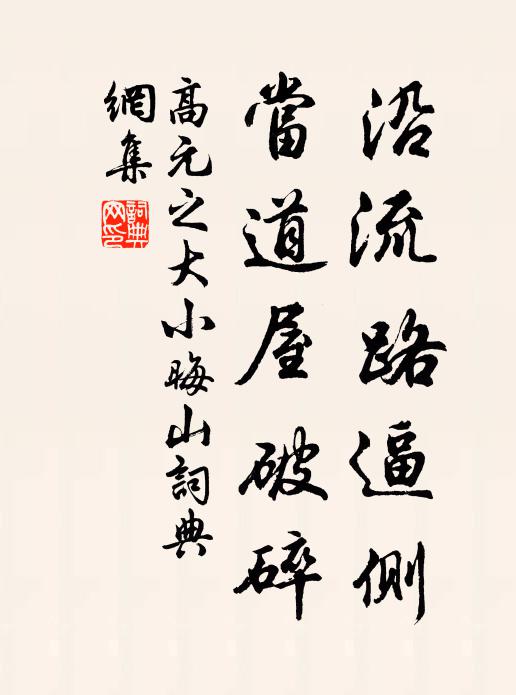 沿流路逼側
當道屋破碎
高元之大小晦山詞典
網集
詞典網印